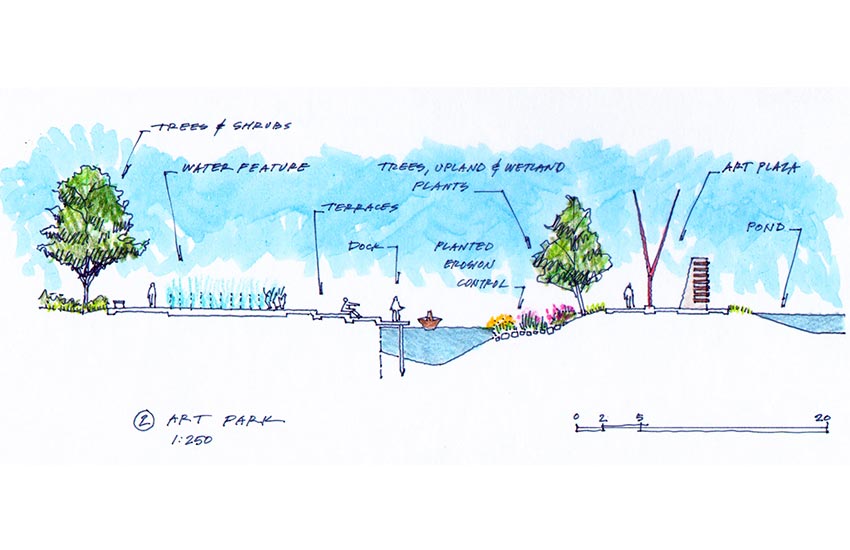 TREES & SHRUBS
WATER FEATURE
TERRACES
DOCK
TREES, UPLAND & WETLAND
PLANTS
PLANTED
EROSION
CONTROL
ART PLAZA
POND
2 ART PARK
1:250
0 2 5 20